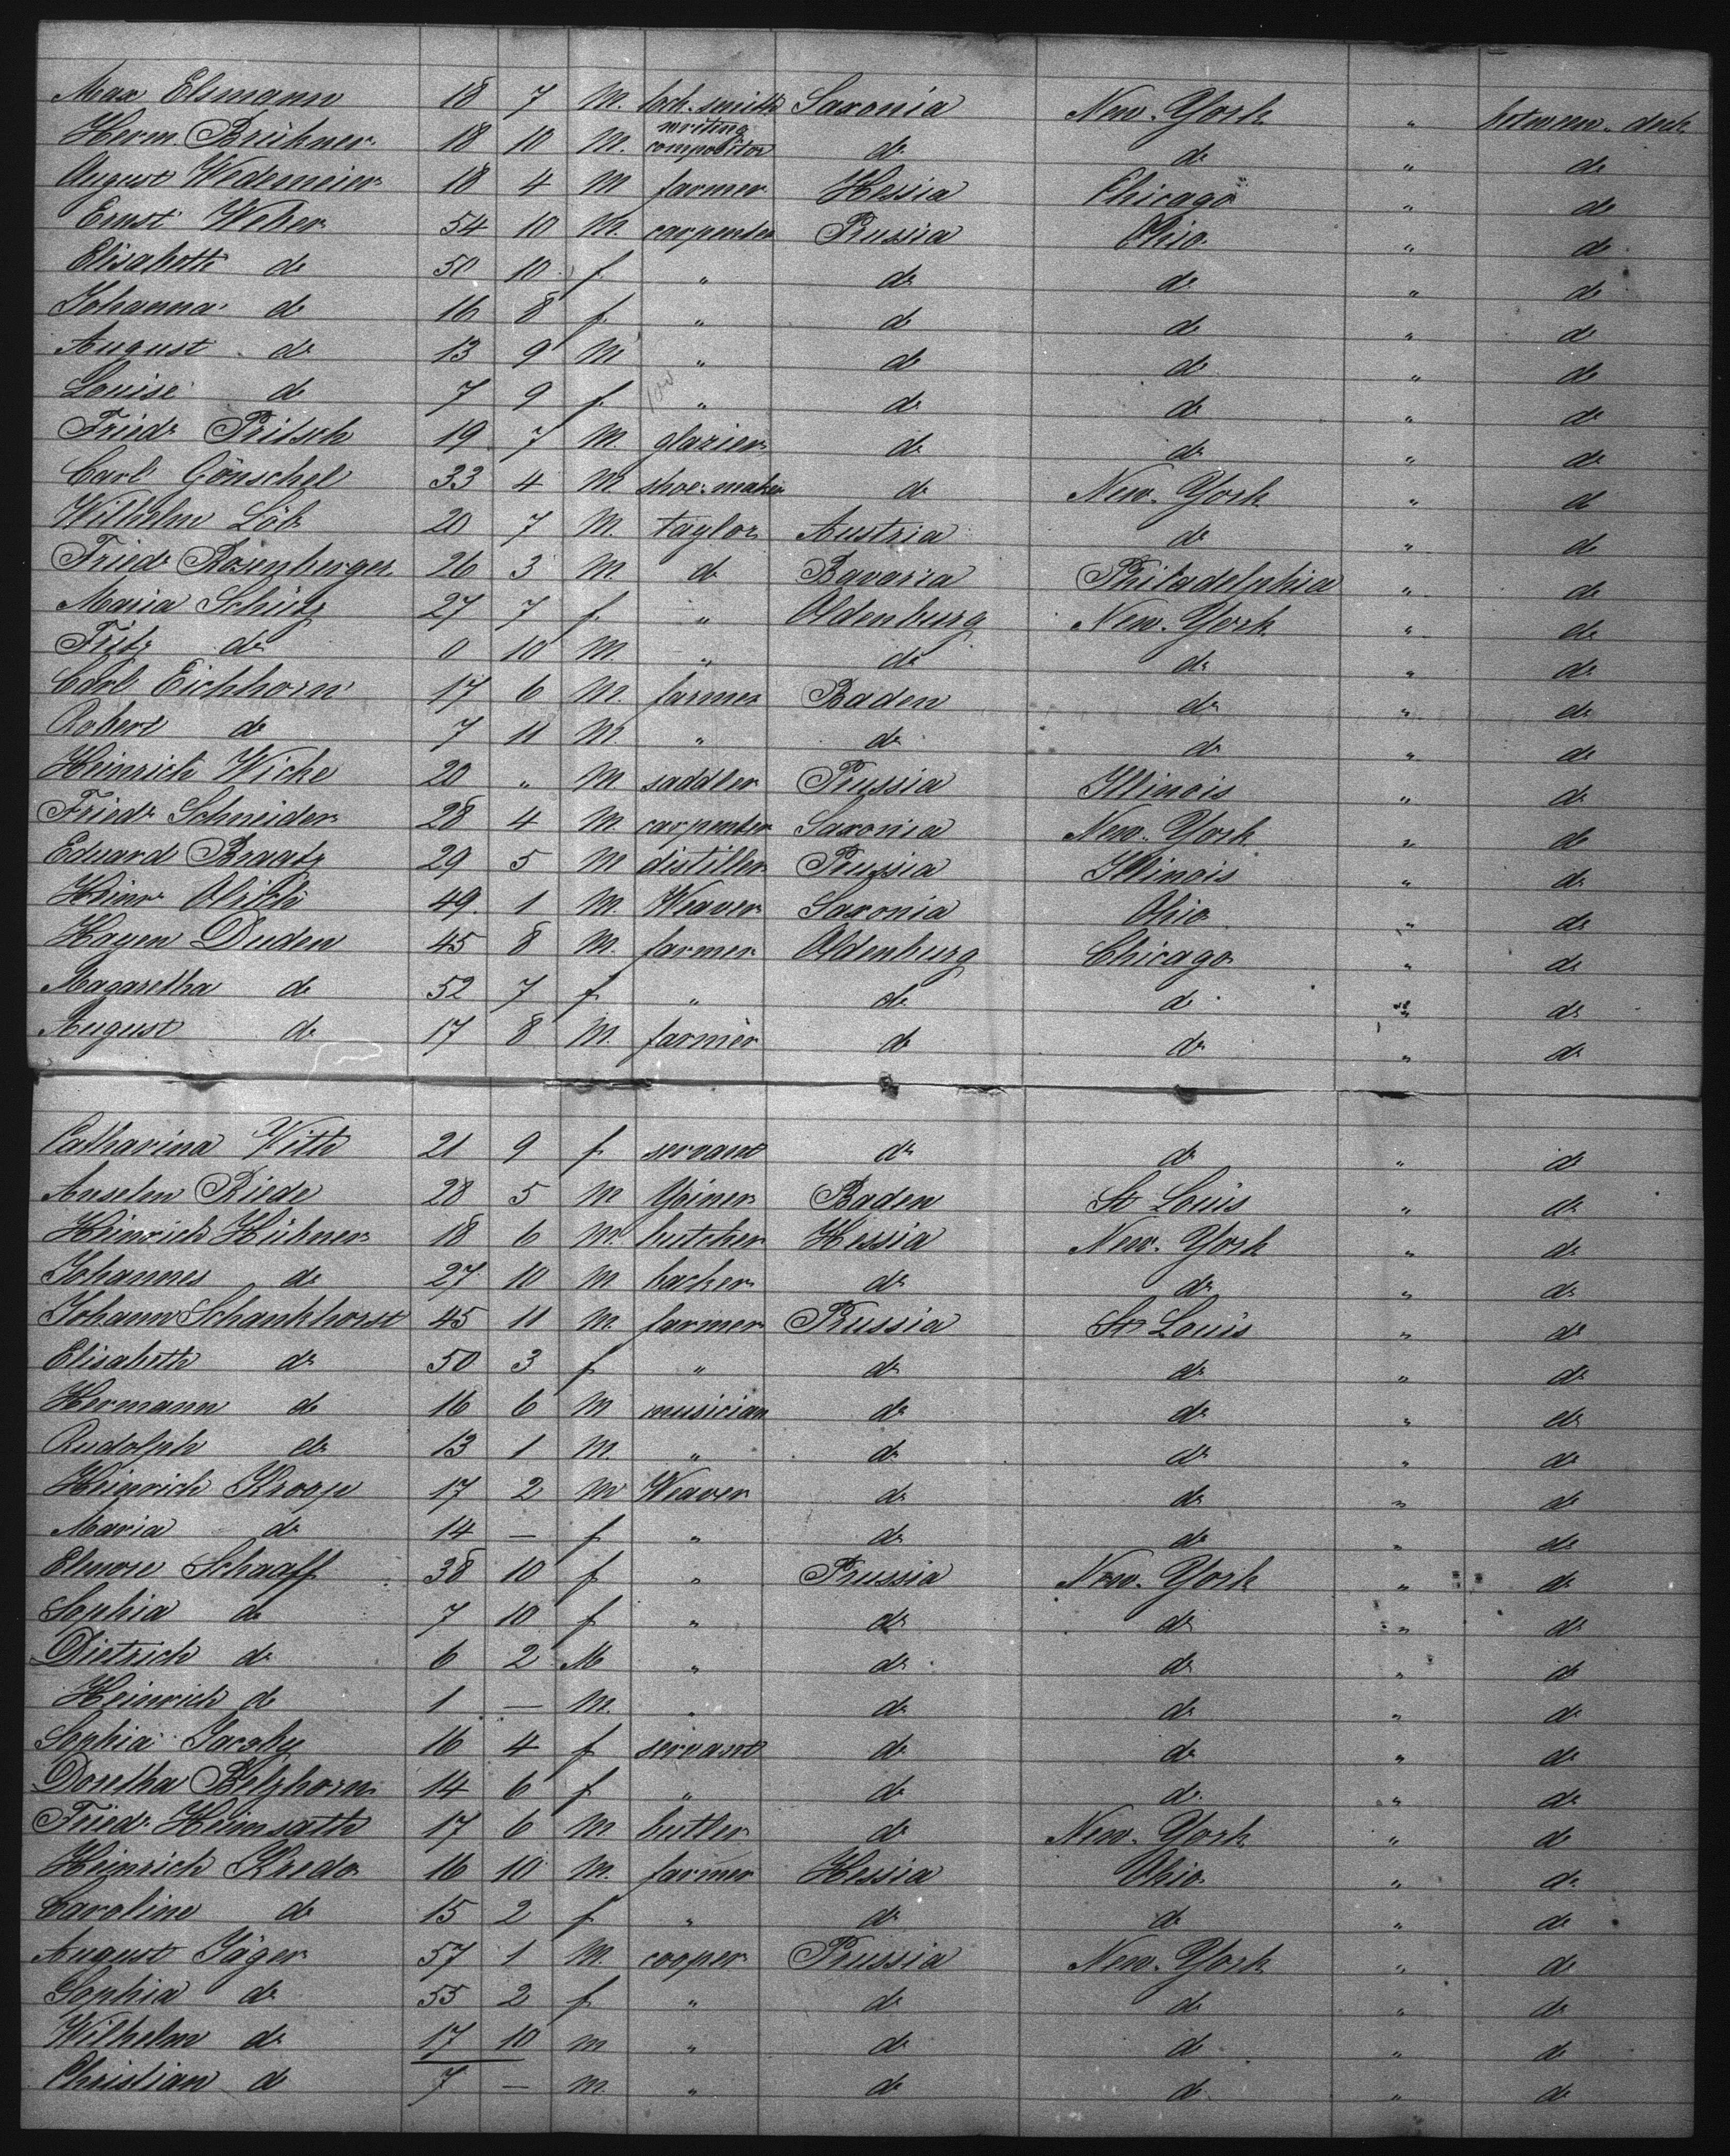 Max Elsmann 18 7 M. lock. smith Saxonia New. York " between. deck
Herm. Brükner 18 10 M. writing compositor do do " do
August Wedemeier 18 4 M farmer Hessia Chicago " do
Ernst Weber 54 10 M. carpenter Prussia Ohio " do
Elisabeth do 50 10 f " do do " do
Johanna do 16 8 f. " do do " do
August do 13 9 M " do do " do
Louise do 7 9 f. " do do " do
Friedr Pritsch 19 7 M glazier do do " do
Carl Gönschel 33 4 M shoe-maker do New. York " do
Wilhelm Löb 20 7 M. taylor Austria do " do
Friedr Rosenberger 26 3 M. do Bavaria Philadelphia " do
Maria Schütz 27 7 f. " Oldenburg New. York " do
Fritz do 0 10 M. " do do " do
Carl Eichhorn 17 6 M. farmer Baden do " do
Robert do 7 11 M. " do do " do
Heinrich Wicke 20 " M saddler Prussia Illinois " do
Friedr Schneider 28 4 M. carpenter Saxonia New. York " do
Eduard Braatz 29 5 M distiller Prussia Illinois " do
Heinr 49. 1 M. Weaver Saxonia Ohio " do
Hayen Duden 45 8 M. farmer Oldenburg Chicago " do
Magaretha do 52 7 f. " do do " do
August do 17 8 M. farmer do do " do
Catharina Vith 21 9 f servant do do " do
Anselm Riede 28 5 M Yoiner Baden St Louis " do
Heinrich Hübner 18 6 M. butcher Hessia New. York " do
Johannes do 27 10 M backer do do " do
Johann Schankhorst 45 11 M. farmer Prussia St Louis " do
Elisabeth do 50 3 f " do do " do
Hermann do 16 6 M musician do do " do
Rudolph do 13 1 M. " do do " do
Heinrich Kropp 17 2 M Weaver do do " do
Maria do 14 — f " do do " do
Schaaff 38 10 f " Prussia New. York " do
Sophia do 7 10 f " do do " do
Dietrich do 6 2 M " do do " do
Heinrich do 1 — M. " do do " do
Sophia Jacoby 16 4 f servant do do " do
Doretha Belzhorn 14 6 f " do do " do
Friedr Heimsath 17 6 M. butler do New. York " do
Heinrich Kredo 16 10 M. farmer Hessia Ohio " do
Caroline do 15 2 f " do do " do
August Jäger 57 1 M. cooper Prussia New. York " do
Sophia do 55 2 f " do do " do
Wilhelm do 17 10 m " do do " do
Christian do 7 — m. " do do " do